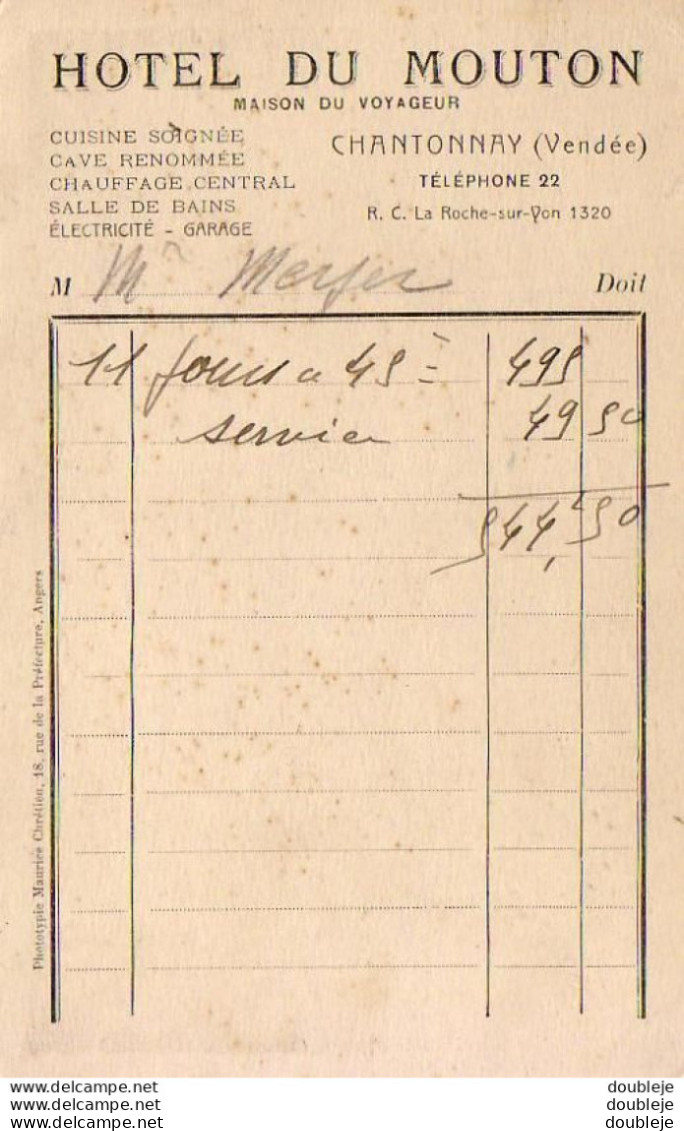 HOTEL DU MOUTON
MAISON DU VOYAGEUR
CUISINE SOIGNÉE
CAVE RENOMMÉE
CHAUFFAGE CENTRAL
SALLE DE BAINS
ÉLECTRICITÉ - GARAGE
CHANTONNAY (Vendée)
TÉLÉPHONE 22
R. C. La Roche-sur-Yon 1320
M Mr Doit
11 jours a 45 = 495
service 49 50
544,50
Phototypie Maurice Chrétien, 18, rue de la Préfecture, Angers
www.delcampe.net
www.delcampe.net
www.delcampe.net
doubleje
doubleje
doubleje